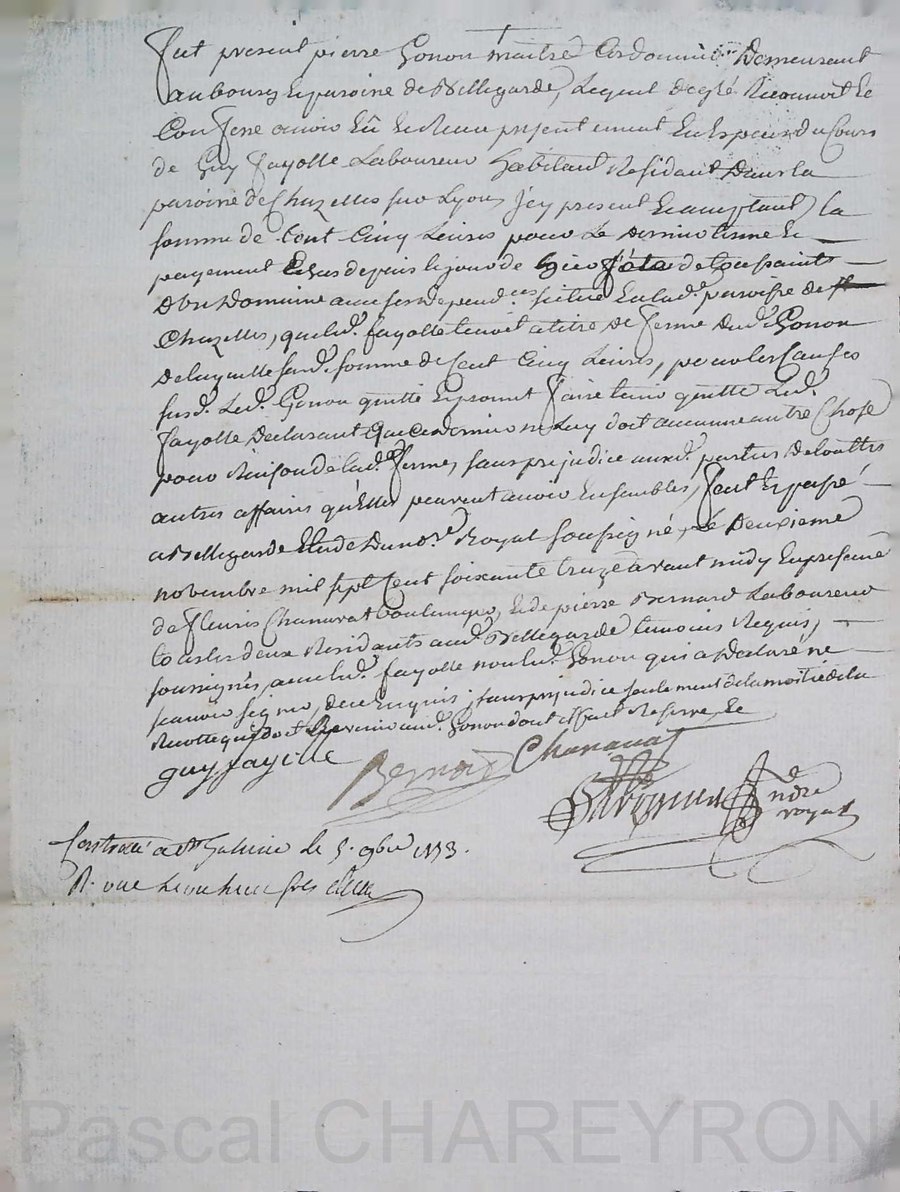 fut present pierre Gonon maitre Cordonnier Demeurant
au bourg et paroisse de Bellegarde, Lequel de gré Reconnoit et
Confesse avoir Eû et Receu presentement En Especes du Cours
de Guy fayolle Laboureur habitant Residant dans la
paroisse de Chazelles sur Lyon, Icy present et acceptant, la
somme de Cent Cinq Livres pour Le dernier terme et
payement Echus depuis le jour de hier fête de toussaints
D'un Domaine avec ses depend.ces situé En lad.e paroisse de
Chazelles, que led. fayolle tenoit a titre de ferme dud. Gonon
De laquelle sus.d. somme de Cent Cinq Livres, pour les Causes
susd. Led. Gonon quitte et promet faire tenir quitte Led.
fayolle Declarant que ce dernier ne Luy doit aucune autre Chose
pour Raison de lad. ferme, sans prejudice auxd. parties De touttes
autres affaires qu'elles peuvent avoir Ensembles, fait Et passé
a Bellegarde Etude Du no.re Royal soussigné, Le Deuxieme
novembre mil sept Cent soixante treize avant midy En presence
de fleuris Chanavat boulanger, et de pierre Bernard Laboureur
tous les deux Residants aud. Bellegarde temoins Requis,
soussignés, avec led. fayolle non led. Gonon qui a Declaré ne
scavoir signer, de ce Enquis; sans prejudice seulement de la moitié de la
Recolte qui doit Revenir aud. Gonon dont il fait Reserve, Et
guy fayolle
Bernard Chanavat
ndre
royal
Controllé a St Galmier le 5. 9bre 1773.
R.
Pascal CHAREYRON